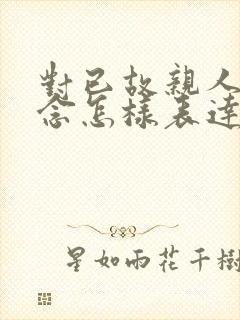 對已故親人
念怎樣表達
星如雨花千樹